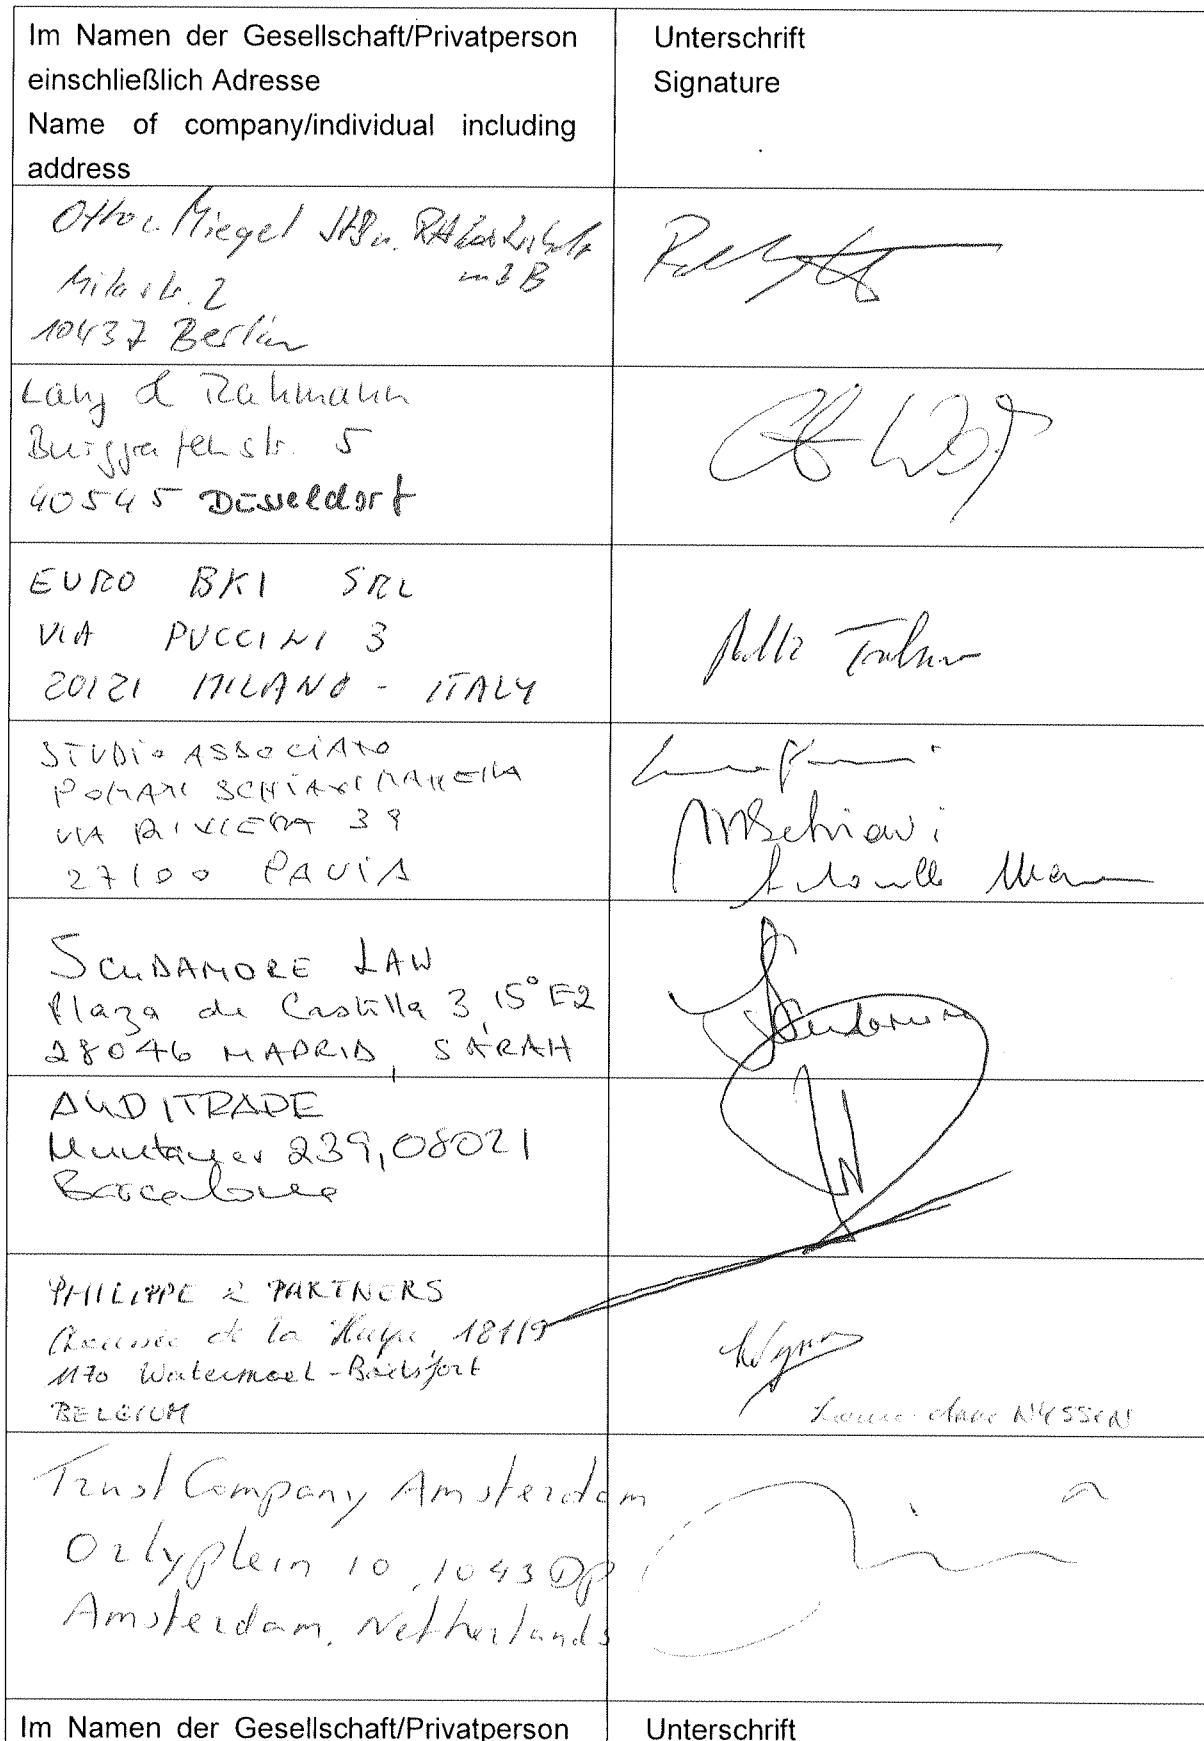 Im Namen der Gesellschaft/Privatperson
einschließlich Adresse
Name of company/individual including
address
Unterschrift
Signature
Otto u. Miegel StB u. RA
mbB
Milastr. 2
10437 Berlin
Lang & Rahmann
Burggrafenstr. 5
40545 Düsseldorf
EURO BKI SRL
VIA PUCCINI 3
20121 MILANO - ITALY
STUDIO ASSOCIATO
POMARI SCHIAVI
VIA RIVIERA 39
27100 PAVIA
MBSchiavi
SCUDAMORE LAW
Plaza de Castilla 3, 15° E2
28046 MADRID, SARAH
Scudamore
AUDITRADE
Muntaner 239, 08021
Barcelona
PHILIPPE & PARTNERS
Chaussée de la Hulpe, 181/9
1170 Watermael-Boitsfort
BELGIUM
NYSSEN
Trust Company Amsterdam
Orlyplein 10, 1043 DP
Amsterdam, Netherlands
Im Namen der Gesellschaft/Privatperson
Unterschrift